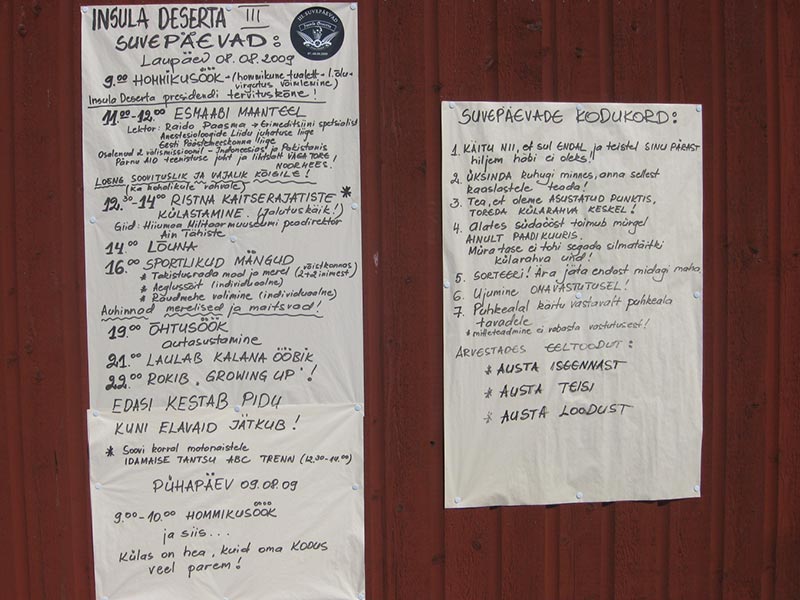 INSULA DESERTA III
SUVEPÄEVAD:
Laupäev 08.08.2009
9.00 HOMMIKUSÖÖK - (hommikune tualett - 1. õlu -
virgutus võimlemine)
Insula Deserta presidendi tervituskõne!
11.00-12.00 ESMAABI MAANTEEL
Lektor: Raido Paasma → Erimeditsiini spetsialist
Anestesioloogide Liidu juhatuse liige
Eesti Päästemeeskonna liige
Osalenud 2 välismissioonil - Indoneesias ja Pakistanis
Pärnu AIO teenistuse juht ja lihtsalt VÄGA TORE
NOORMEES!
LOENG SOOVITUSLIK JA VAJALIK KÕIGILE!
(ka kohalikule rahvale)
12.30-14.00 RISTNA KAITSERAJATISTE *
KÜLASTAMINE. (Jalutuskäik!)
Giid: Hiiumaa Militaarmuuseumi peadirektör
Ain Tähiste
14.00 LÕUNA
16.00 SPORTLIKUD MÄNGUD
* Takistusrada maal ja merel (võistkonnas 2+2 inimest)
* Aeglussõit (individuaalne)
* Raudmehe valimine (individuaalne)
Auhinnad merelised ja maitsvad!
19.00 ÕHTUSÖÖK
autasustamine
21.00 LAULAB KALANA ÖÖBIK
22.00 ROKIB "GROWING UP"!
EDASI KESTAB PIDU
KUNI ELAVAID JÄTKUB!
* Soovi korral motonaistele
IDAMAISE TANTSU ABC TRENN (12.30-14.00)
PÜHAPÄEV 09.08.09
9.00-10.00 HOMMIKUSÖÖK
ja siis...
Külas on hea, kuid oma KODUS
veel parem!
III SUVEPÄEVAD
Insula Deserta
SUVEPÄEVADE KODUKORD:
1. KÄITU NII, et sul ENDAL ja teistel SINU PÄRAST
hiljem häbi ei oleks!
2. ÜKSINDA kuhugi minnes, anna sellest
kaaslastele teada!
3. Tea, et oleme ASUSTATUD PUNKTIS,
TOREDA KÜLARAHVA KESKEL!
4. Alates südaööst toimub mürgel
AINULT PAADIKUURIS.
Müra tase ei tohi segada silmatäitki
külarahva und!
5. SORTEERI! Ära jäta endast midagi maha
6. Ujumine OMAVASTUTUSEL!
7. Puhkealal käitu vastavalt puhkeala
tavadele
* mitteteadmine ei vabasta vastutusest!
ARVESTADES EELTOODUT:
* AUSTA ISEENNAST
* AUSTA TEISI
* AUSTA LOODUST